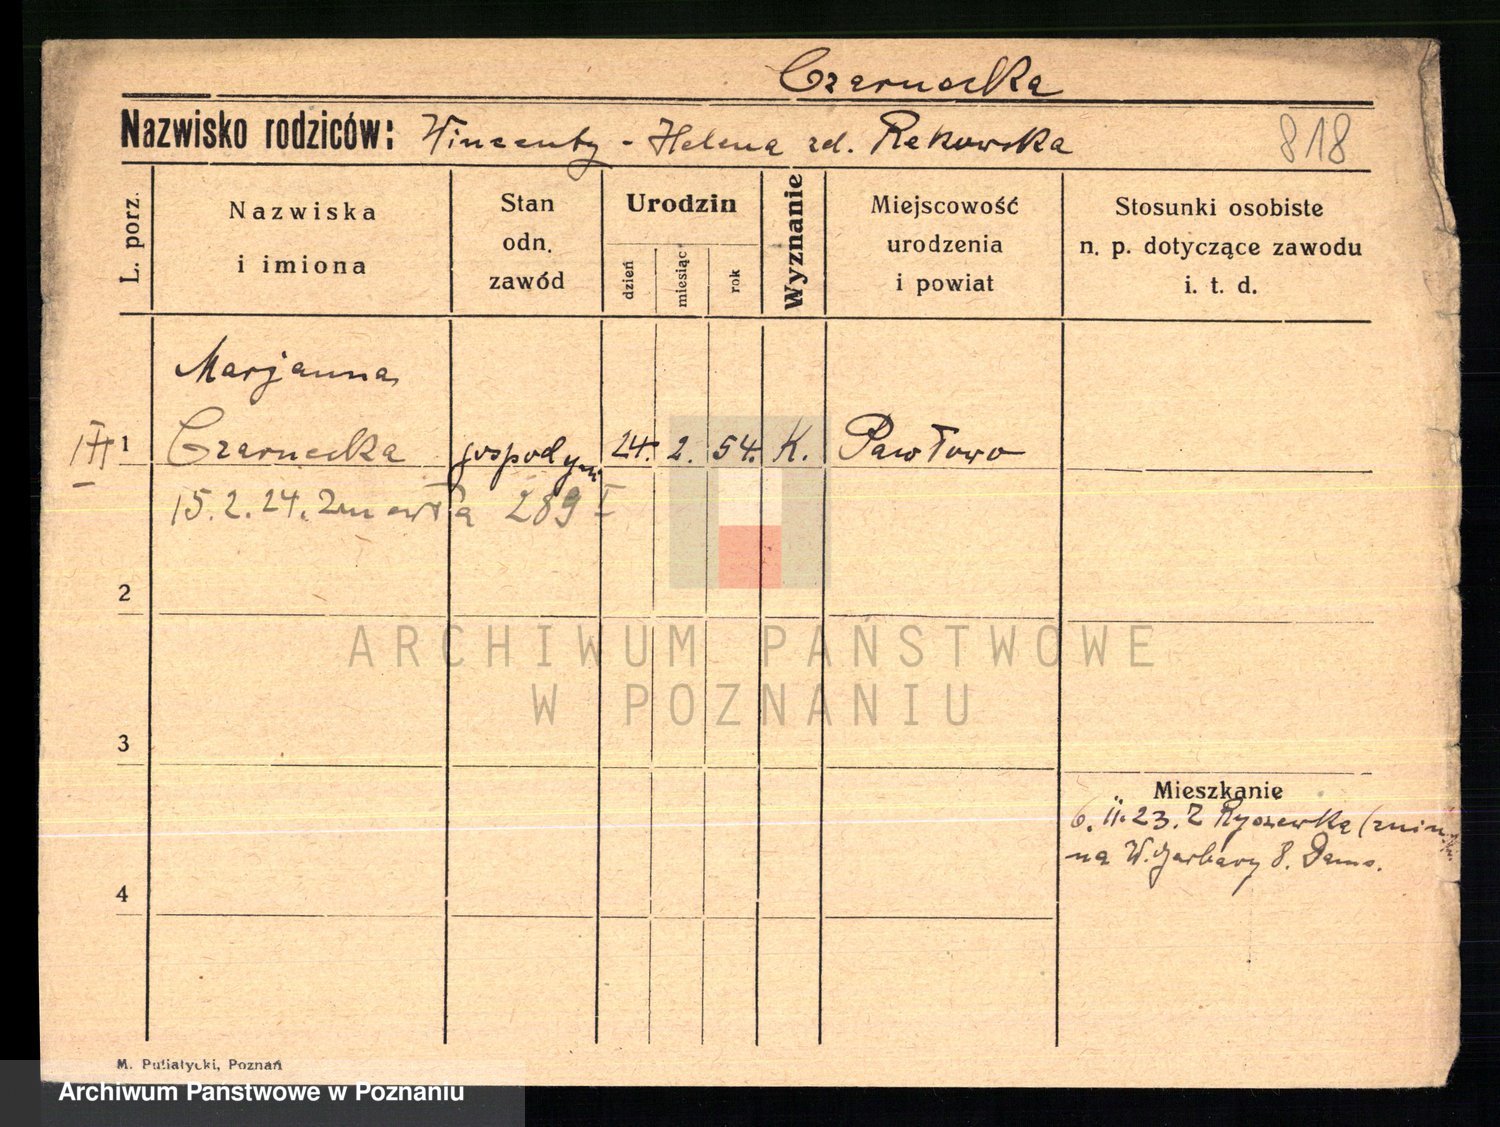 Czarnecka
Nazwisko rodziców: Wincenty - Helena zd. Rekowska
818
L. porz.
Nazwiska
i imiona
Stan
odn.
zawód
Urodzin
dzień
miesiąc
rok
Wyznanie
Miejscowość
urodzenia
i powiat
Stosunki osobiste
n. p. dotyczące zawodu
i. t. d.
Marjanna
III 1 Czarnecka gospodyni 24. 2. 54. K. Pawłowo
15. 2. 24. Zmarła 289 I
2
ARCHIWUM PAŃSTWOWE
W POZNANIU
3
Mieszkanie
6. II. 23. Z Ryszewka
na W. Garbary 8.
4
M. Putiatycki, Poznań
Archiwum Państwowe w Poznaniu